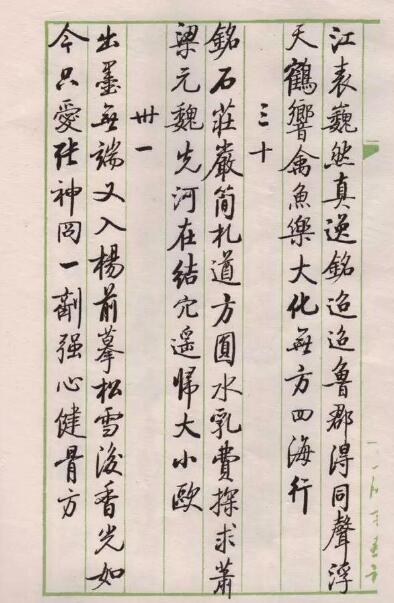 江表巍然真逸銘迢迢魯郡得同聲浮
天鶴響禽魚樂大化無方四海行
三十
銘石莊嚴簡札道方圓水乳費探求蕭
梁元魏先河在結穴遥歸大小歐
卅一
出墨無端又入楊前摹松雪後香光如
今只愛張神冏一劑强心健骨方